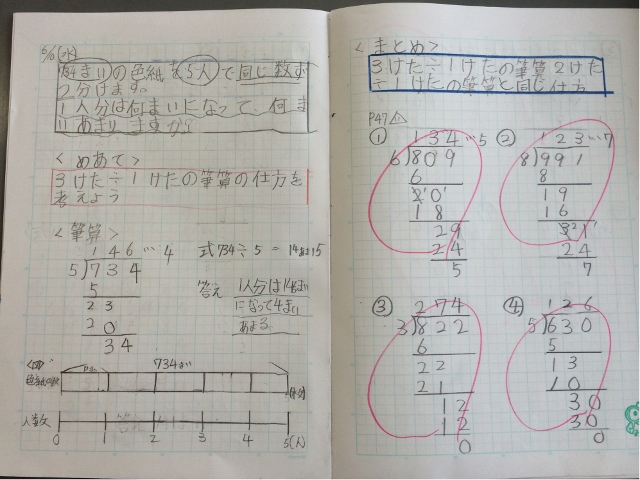 5/10(水)
734まいの色紙を5人で同じ数ず
つ分けます。
1人分は何まいになって、何ま
いあまりますか?
<めあて>
3けた÷1けたの筆算の仕方を
考えよう
<筆算>
146…4
5)734
5
23
20
34
式734÷5=
答え 1人分は146まい
になって4まい
あまる
<図>
734まい
色紙の数
人数
0 1 2 3 4 5(人)
<まとめ>
3けた÷1けたの筆算2けた
÷1けたの筆算と同じ仕方
P47
① 134…5
6)809
6
20
18
29
24
5
② 123…7
8)991
8
19
16
31
24
7
③ 274
3)822
6
22
21
12
12
0
④ 126
5)630
5
13
10
30
30
0